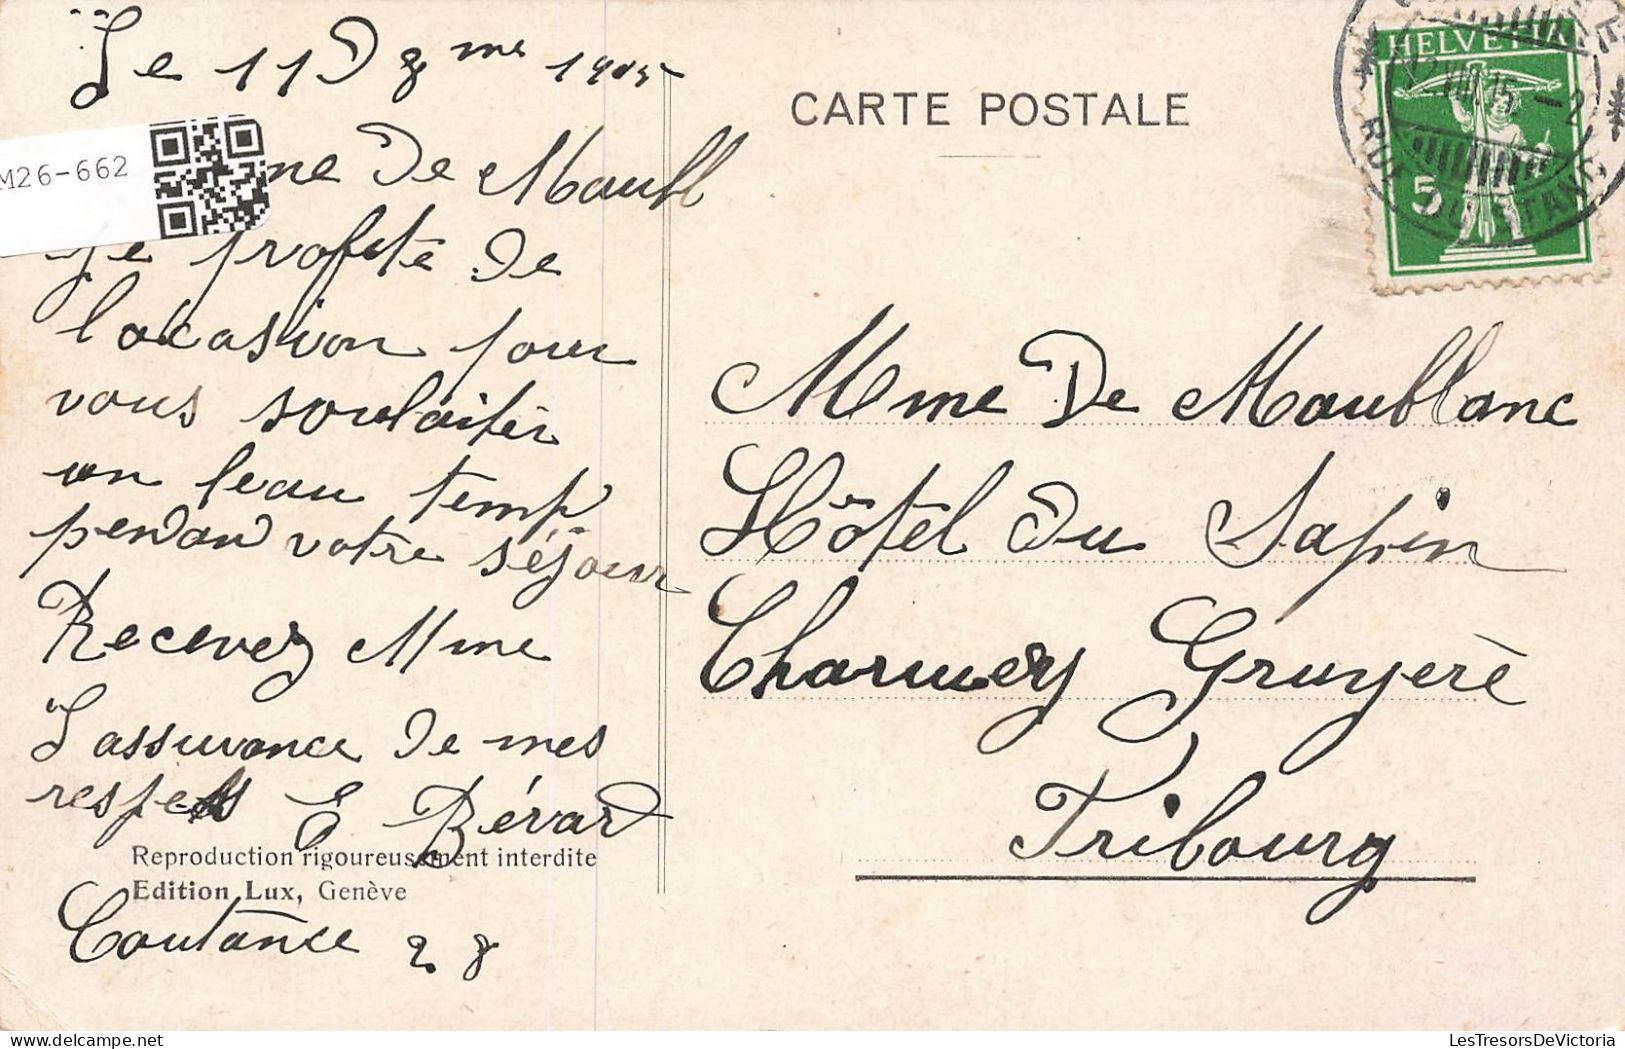 Le 11 Dzme 1915
me De Maubl
je profite de
l'ocasion pour
vous souhaiter
un beau temp
pendan votre séjour
Recevez Mme
L'assurance de mes
respets E Bérard
Reproduction rigoureusement interdite
Edition Lux, Genève
Coutance 28
CARTE POSTALE
HELVETIA
5
RUE DU STAND
Mme De Maublanc
Hôtel du Sapin
Charmey Gruyère
Fribourg
M26-662
LesTresorsDeVictoria